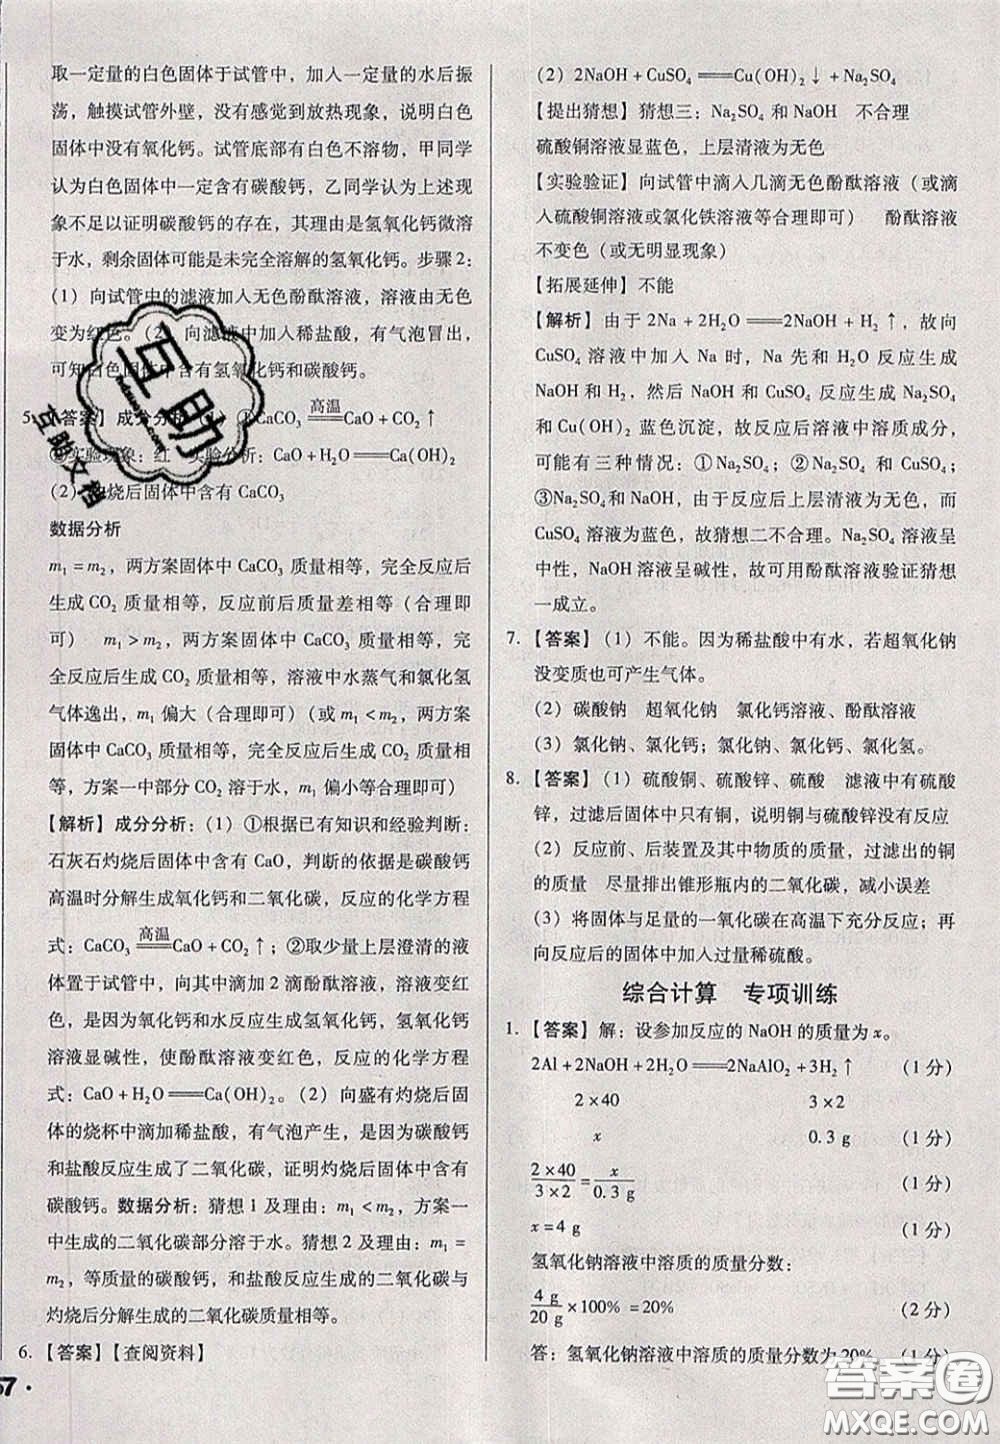 取一定量的白色固体于试管中，加入一定量的水后振
荡，触摸试管外壁，没有感觉到放热现象，说明白色
固体中没有氧化钙。试管底部有白色不溶物，甲同学
认为白色固体中一定含有碳酸钙，乙同学认为上述现
象不足以证明碳酸钙的存在，其理由是氢氧化钙微溶
于水，剩余固体可能是未完全溶解的氢氧化钙。步骤2：
（1）向试管中的滤液加入无色酚酞溶液，溶液由无色
变为红色。（2）向滤渣中加入稀盐酸，有气泡冒出，
可知白色固体中含有氢氧化钙和碳酸钙。
5.【答案】成分分析（1）①CaCO₃ 高温 CaO + CO₂↑
②实验现象：红 实验分析：CaO + H₂O══Ca(OH)₂
（2）灼烧后固体中含有 CaCO₃
数据分析
m₁ = m₂，两方案固体中 CaCO₃ 质量相等，完全反应后
生成 CO₂ 质量相等，反应前后质量差相等（合理即
可） m₁ > m₂，两方案固体中 CaCO₃ 质量相等，完全
反应后生成 CO₂ 质量相等，溶液中水蒸气和氯化氢
气体逸出，m₁ 偏大（合理即可）（或 m₁ < m₂，两方案
固体中 CaCO₃ 质量相等，完全反应后生成 CO₂ 质量相
等，方案一中部分 CO₂ 溶于水，m₁ 偏小等合理即可）
【解析】成分分析：（1）①根据已有知识和经验判断：
石灰石灼烧后固体中含有 CaO，判断的依据是碳酸钙
高温时分解生成氧化钙和二氧化碳，反应的化学方程
式：CaCO₃ 高温 CaO + CO₂↑；②取少量上层澄清的液
体置于试管中，向其中滴加 2 滴酚酞溶液，溶液变红
色，是因为氧化钙和水反应生成氢氧化钙，氢氧化钙
溶液显碱性，使酚酞溶液变红色，反应的化学方程
式：CaO + H₂O══Ca(OH)₂。（2）向盛有灼烧后固
体的烧杯中滴加稀盐酸，有气泡产生，是因为碳酸钙
和盐酸反应生成了二氧化碳，证明灼烧后固体中含有
碳酸钙。数据分析：猜想 1 及理由：m₁ < m₂，方案一
中生成的二氧化碳部分溶于水。猜想 2 及理由：m₁ =
m₂，等质量的碳酸钙，和盐酸反应生成的二氧化碳与
灼烧后分解生成的二氧化碳质量相等。
6.【答案】【查阅资料】
57 ·
（2）2NaOH + CuSO₄══Cu(OH)₂↓ + Na₂SO₄
【提出猜想】猜想三：Na₂SO₄ 和 NaOH 不合理
硫酸铜溶液显蓝色，上层清液为无色
【实验验证】向试管中滴入几滴无色酚酞溶液（或滴
入硫酸铜溶液或氯化铁溶液等合理即可） 酚酞溶液
不变色（或无明显现象）
【拓展延伸】不能
【解析】由于 2Na + 2H₂O══2NaOH + H₂↑，故向
CuSO₄ 溶液中加入 Na 时，Na 先和 H₂O 反应生成
NaOH 和 H₂，然后 NaOH 和 CuSO₄ 反应生成 Na₂SO₄
和 Cu(OH)₂ 蓝色沉淀，故反应后溶液中溶质成分，
可能有三种情况：①Na₂SO₄；②Na₂SO₄ 和 CuSO₄；
③Na₂SO₄ 和 NaOH，由于反应后上层清液为无色，而
CuSO₄ 溶液为蓝色，故猜想二不合理。Na₂SO₄ 溶液呈
中性，NaOH 溶液呈碱性，故可用酚酞溶液验证猜想
一成立。
7.【答案】（1）不能。因为稀盐酸中有水，若超氧化钠
没变质也可产生气体。
（2）碳酸钠 超氧化钠 氯化钙溶液、酚酞溶液
（3）氯化钠、氯化钙；氯化钠、氯化钙、氯化氢。
8.【答案】（1）硫酸铜、硫酸锌、硫酸 滤液中有硫酸
锌，过滤后固体中只有铜，说明铜与硫酸锌没有反应
（2）反应前、后装置及其中物质的质量，过滤出的铜
的质量 尽量排出锥形瓶内的二氧化碳，减小误差
（3）将固体与足量的一氧化碳在高温下充分反应；再
向反应后的固体中加入过量稀硫酸。
综合计算 专项训练
1.【答案】解：设参加反应的 NaOH 的质量为 x。
2Al + 2NaOH + 2H₂O══2NaAlO₂ + 3H₂↑ （1 分）
2×40 3×2
x 0.3 g （1 分）
2×40/3×2 = x/0.3 g （1 分）
x = 4 g （1 分）
氢氧化钠溶液中溶质的质量分数：
4 g/20 g × 100% = 20% （2 分）
答：氢氧化钠溶液中溶质的质量分数为 20%（1 分）
互助
互助文档
答案圈
MXQE.COM